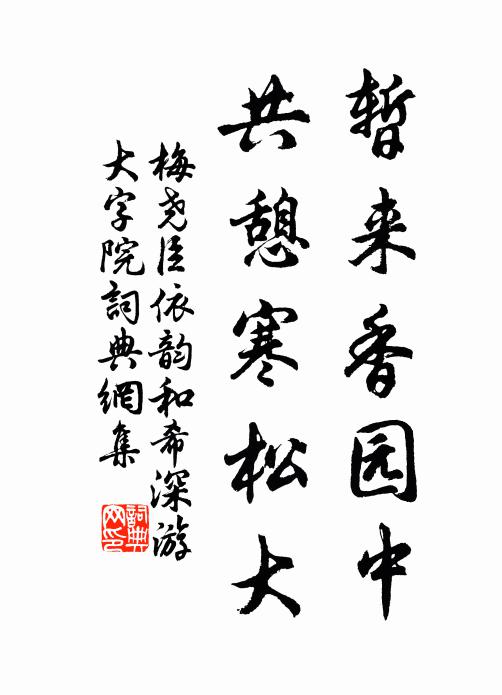 暂来香园中
共憩寒松大
梅尧臣依韵和希深游
大字院詞典網集
詞典
网印